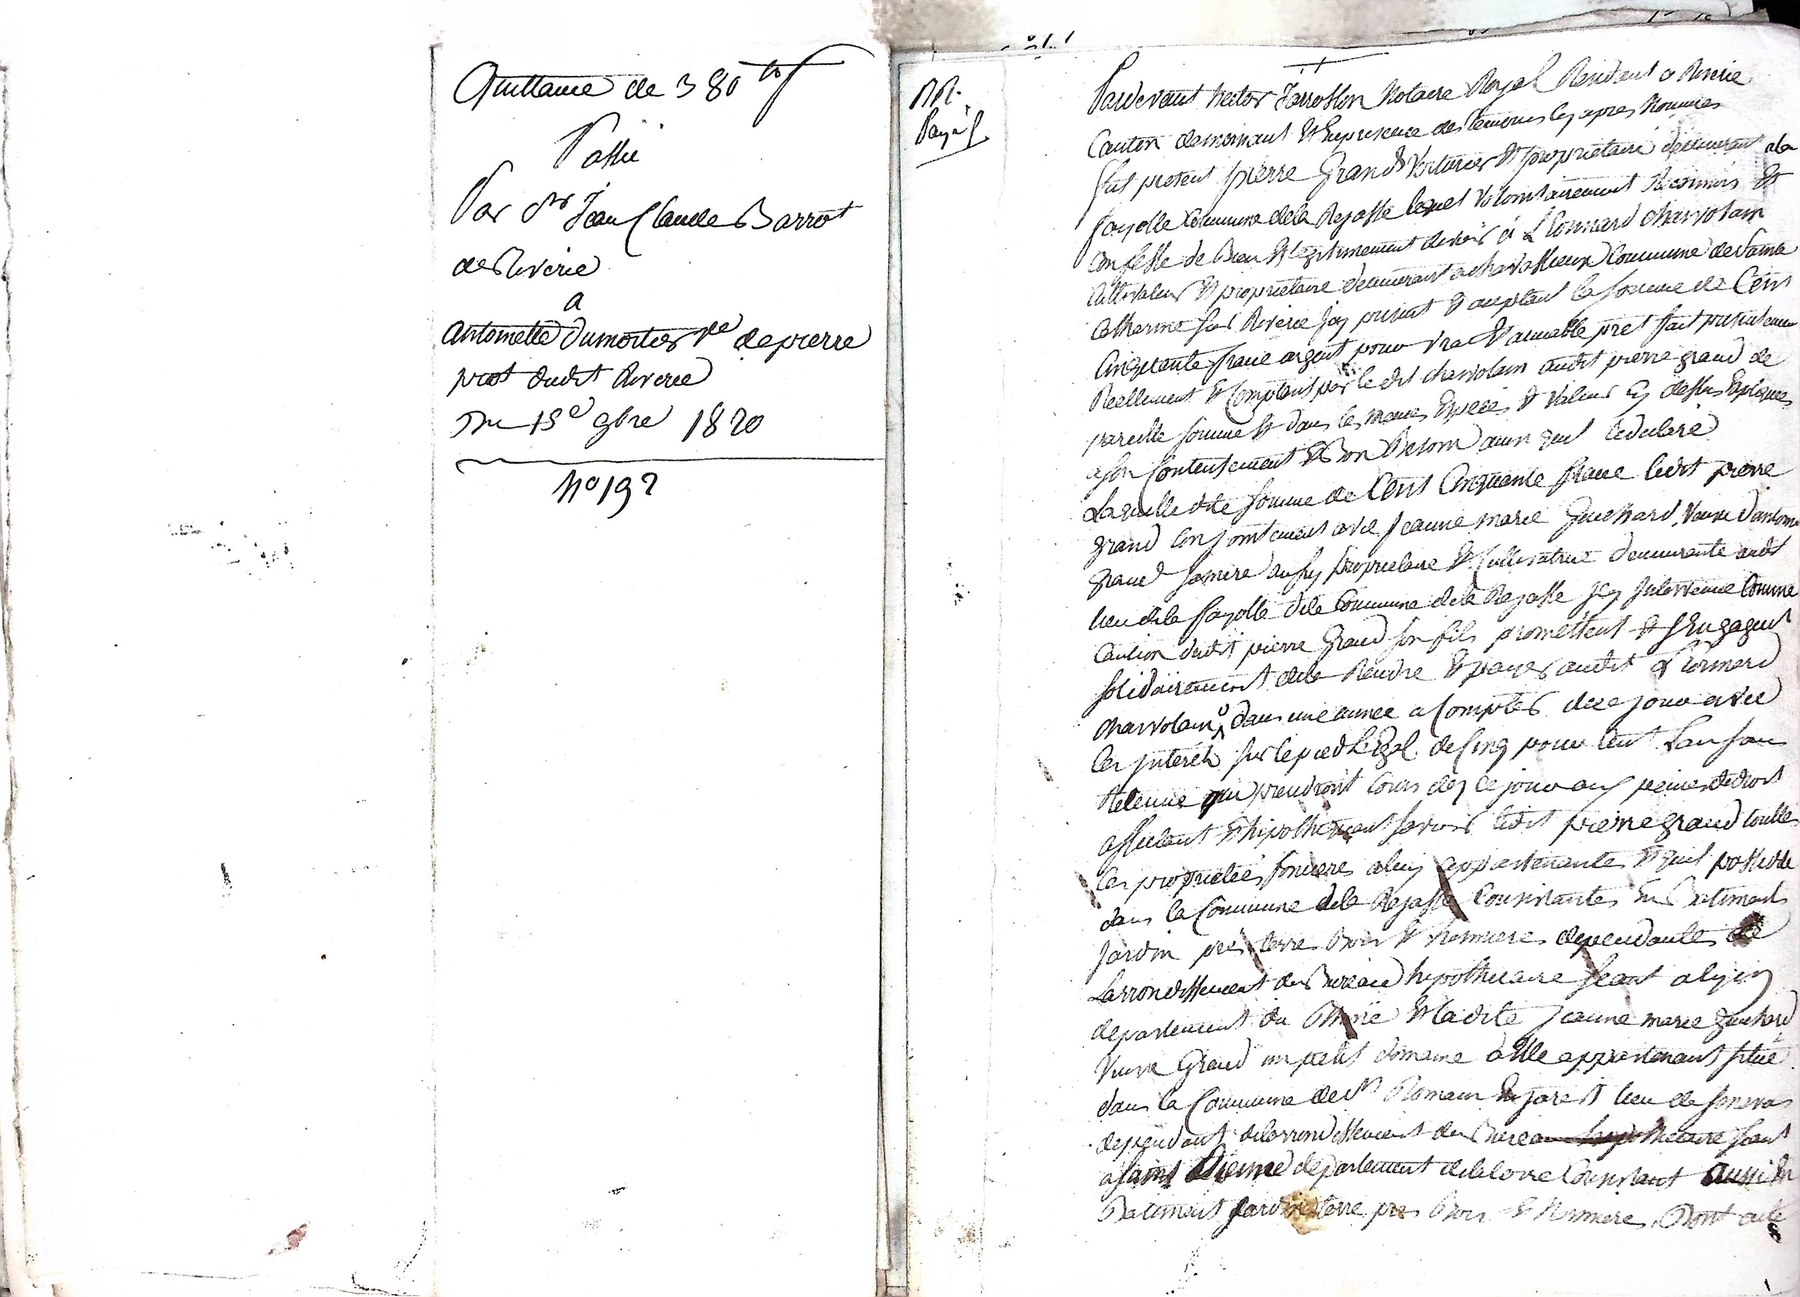 Quittance de 380 #
Passée
Par Sr Jean Claude Barrot
de Riverie
a
antoinette Dumortier Ve de pierre
piot dudit Riverie
Du 15e 9bre 1820
No 192
Payé
Pardevant hector Jarrosson Notaire Royal Residant a Riverie
Canton demornant & Enpresence des temoins cy apres Nommes
fut present pierre Grand Voiturier & proprietaire demeurant ala
fayolle Commune dela Rajasse lequel Volontairement Reconnu &
Confesse de Bien & legitimement devoir à Leonnard charvolain
Cultivateur & proprietaire demeurant a chavassieux Commune de Sainte
Catherine sur Riverie Jcy present & acceptant la somme de Cent
Cinquante franc argent pour vrai & amiable pret fait presentement
Reellement & Comptant par le dit charvolain audit pierre grand de
pareille somme & dans les memes Especes & valeur cy dessus Expliquees
a son Contentement & Bon Besoin ainsi quil ledeclaré
Laquelle dite somme de Cent Cinquante franc ledit pierre
grand Conjointement avec Jeanne marie Guichard, Veuve d'antoine
grand samere aussy proprietaire & Cultivatrice demeurante audit
lieu dela fayolle dite Commune dela Rajasse Jcy Intervenue Comme
Caution dudit pierre Grand son fils promettent & S'Engagent
solidairement dela Rendre & payer audit Leonnard
charvolain dans une année a Compter de ce jour avec
les Interêts sur lepied Legal de Cinq pour Cent Lan sans
Retenue qui prendront Cours dez Cejour aux peines dedroit
affectant & hipothequant savoir ledit pierre grand toutte
les proprietées foncieres aluy appartenante & quil possede
dans la Commune dela Rajasse Consistantes En Batiments
Jardin pré terre Bois & hermiere dependante de
Larrondissement du Bureau hipothecaire seant a lyon
departement du Rhône & Ladite Jeanne marie Guichard
Veuve Grand un petit domaine à Elle appartenant situé
dans la Commune de St Romain En Jarest lieu de
dependant delarrondissement du Bureau hypothecaire seant
a saint Etienne departement delaloire Consistant aussi En
Batiment Jardin terre pre Bois & hermiere, Dont acte